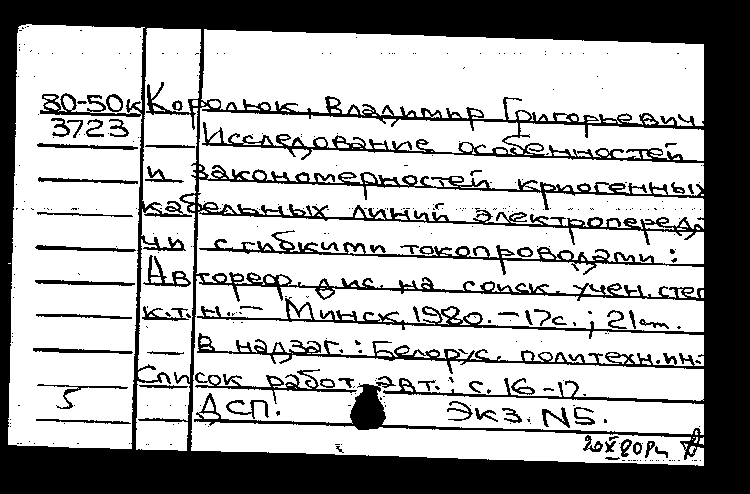 80-50к Королюк, Владимир Григорьевич.
3723 Исследование особенностей
и закономерностей криогенных
кабельных линий электропереда
чи с гибкими токопроводами :
Автореф. дис. на соиск. учен. степ
к.т.н. – Минск, 1980. – 17с. ; 21 см.
В надзаг. : Белорус. политехн. ин-
Список работ авт. : с. 16-17.
5 ДСП! Экз. N5.